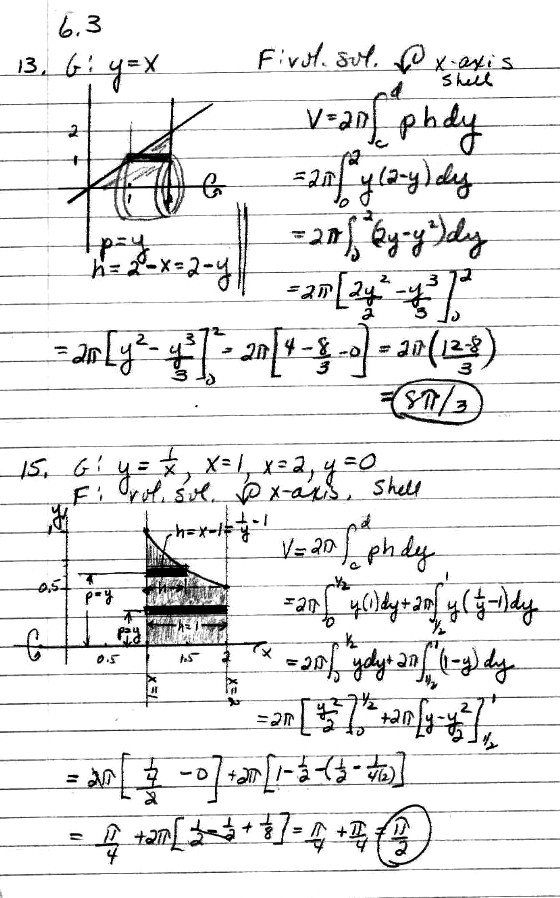 6.3
13. G: y=x F: vol. sol. ↻ x-axis
shell
V=2π∫_c^d phdy
=2π∫_0^2 y(2-y)dy
=2π∫_0^2 (2y-y²)dy
=2π[2y²/2 - y³/3]_0^2
2
1
1
p=y
h=2-x=2-y
=2π[y² - y³/3]_0^2 = 2π[4 - 8/3 - 0] = 2π((12-8)/3)
= 8π/3
15. G: y=1/x, x=1, x=2, y=0
F: vol. sol. ↻ x-axis, shell
y
h=x-1=1/y-1
0.5
p=y
h
p=y
h=1
0.5 1 1.5 2 x
x=1
x=2
V=2π∫_c^d phdy
=2π∫_0^{1/2} y(1)dy+2π∫_{1/2}^1 y(1/y-1)dy
=2π∫_0^{1/2} ydy+2π∫_{1/2}^1 (1-y)dy
=2π[y²/2]_0^{1/2} +2π[y-y²/2]_{1/2}^1
= 2π[(1/4)/2 - 0] + 2π[1-1/2-(1/2-1/4(2))]
= π/4 +2π[1/2-1/2+1/8] = π/4 + π/4 = π/2